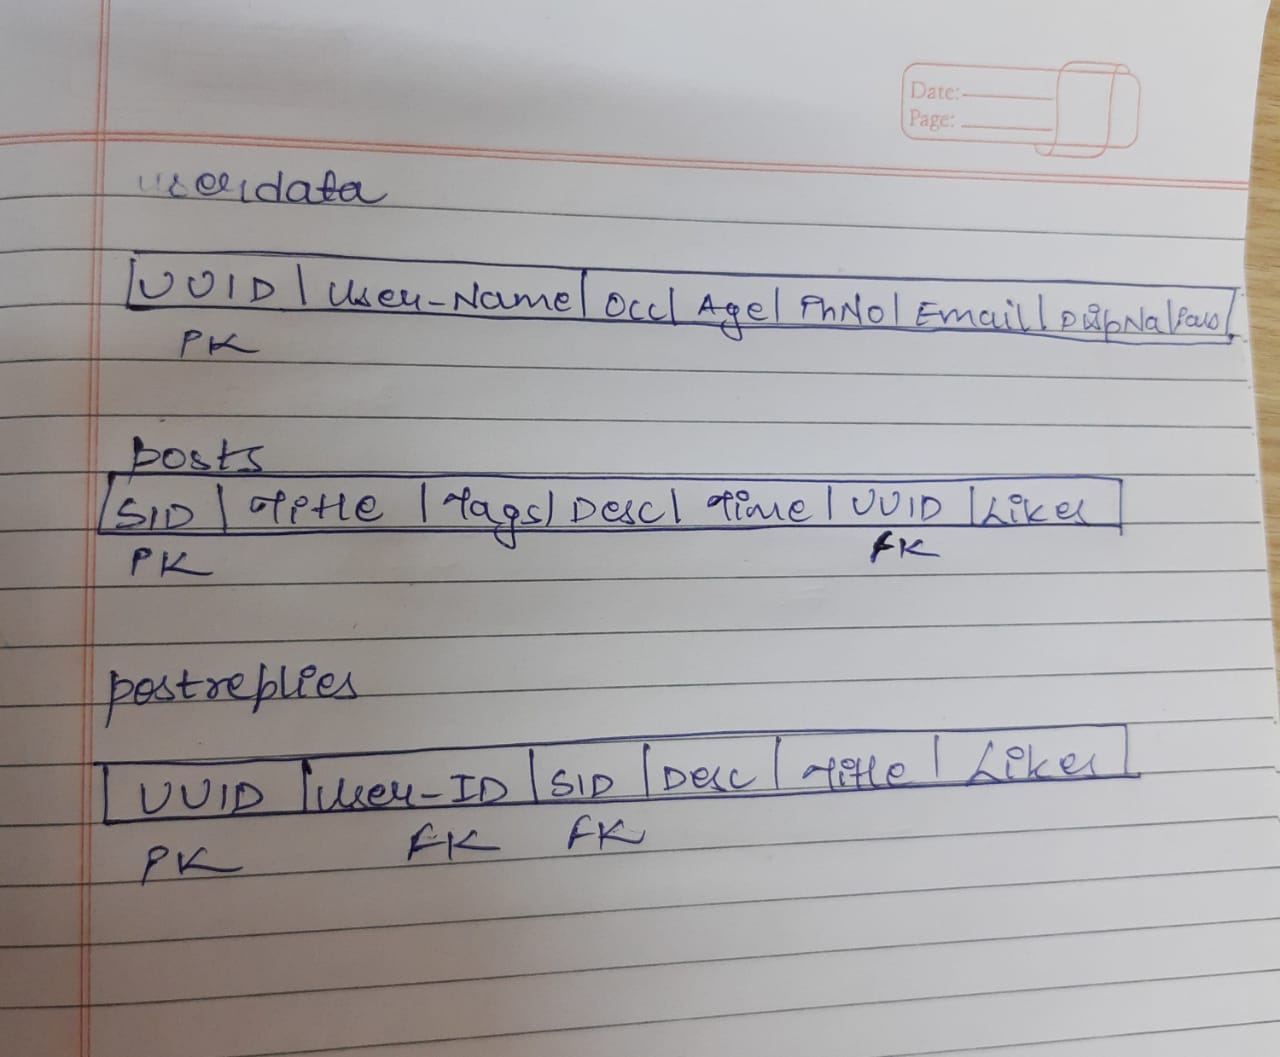 Date:
Page:
userdata
UUID | User-Name | Occ | Age | PhNo | Email | DispNa | Pass
PK
posts
SID | Title | Tags | Desc | Time | UUID | Likes
PK FK
postreplies
UUID | User-ID | SID | Desc | Title | Likes
PK FK FK